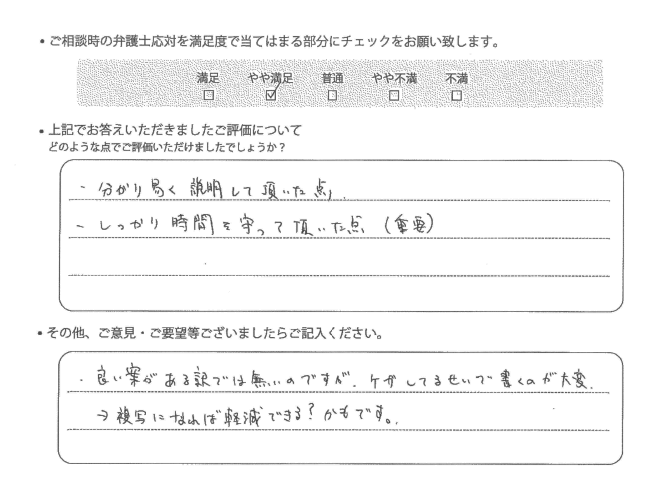 • ご相談時の弁護士応対を満足度で当てはまる部分にチェックをお願い致します。
満足 やや満足 普通 やや不満 不満
□ ☑ □ □ □
• 上記でお答えいただきましたご評価について
どのような点でご評価いただけましたでしょうか？
・分かり易く説明して頂いた点、
・しっかり時間を守って頂いた点（重要）
• その他、ご意見・ご要望等ございましたらご記入ください。
・良い案がある訳では無いのですが、ケガしてるせいで書くのが大変。
→複写になれば軽減できる？かもです。